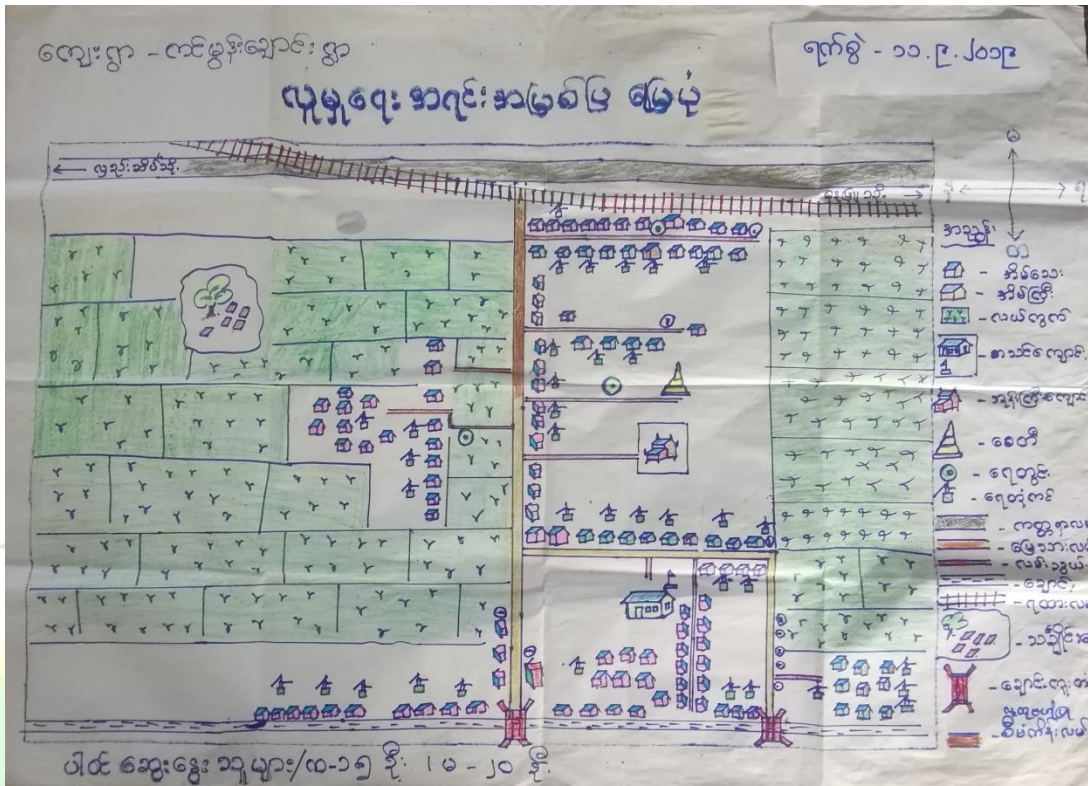 ကျေးရွာ - ကင်မွန်းချောင်း ရွာ
ရက်စွဲ - ၁၁.၉.၂၀၁၉
လူမှုရေး အရင်းအမြစ်ပြ မြေပုံ
မ
တ
အညွှန်း
- အိမ်သေး
- အိမ်ကြီး
- လယ်ကွက်
- စာသင်ကျောင်း
- ဘုန်းကြီးကျောင်း
- စေတီ
- ရေတွင်း
- ရေတုံကင်
- ကတ္တရာလမ်း
- မြေသားလမ်း
- လမ်းသွယ်
- ချောင်း
- ရထားလမ်း
- သင်္ချိုင်း
- ချောင်းကူးတံ
ပါဝင် ဆွေးနွေး သူများ/ကျ-၁၅ ဦး ၊ မ - ၂၀ ဦး